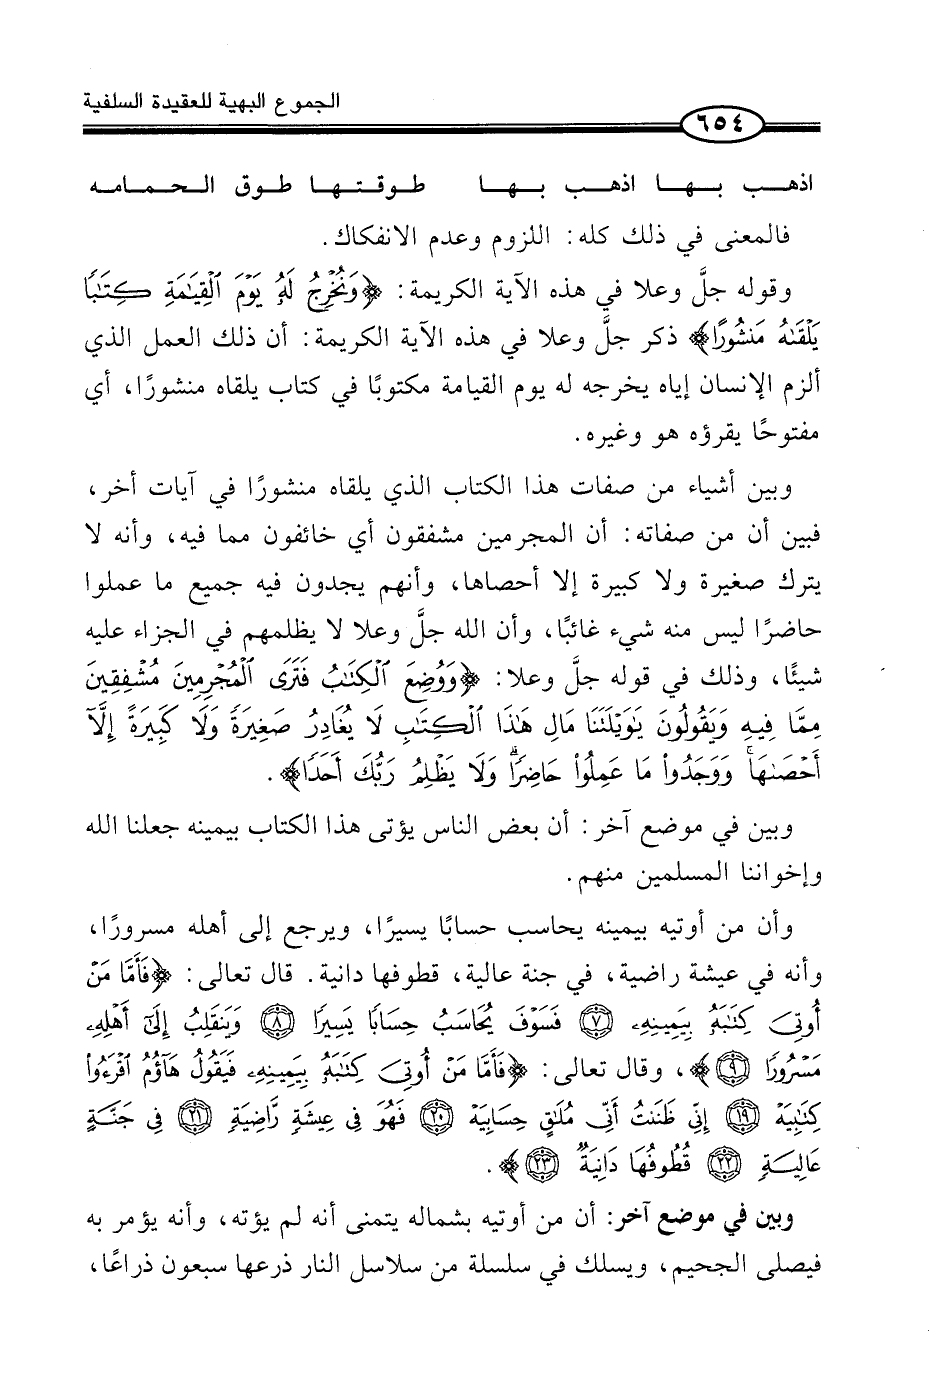 الجموع البهية للعقيدة السلفية
٦٥٤
اذهـــب بـــهـــا اذهـــب بـــهـــا طـوقـتـهـا طوق الـحـمـامـه
فالمعنى في ذلك كله: اللزوم وعدم الانفكاك.
وقوله جلَّ وعلا في هذه الآية الكريمة: ﴿وَنُخْرِجُ لَهُۥ يَوْمَ ٱلْقِيَٰمَةِ كِتَٰبًا
يَلْقَىٰهُ مَنشُورًا﴾ ذكر جلَّ وعلا في هذه الآية الكريمة: أن ذلك العمل الذي
ألزم الإنسان إياه يخرجه له يوم القيامة مكتوبًا في كتاب يلقاه منشورًا، أي
مفتوحًا يقرؤه هو وغيره.
وبين أشياء من صفات هذا الكتاب الذي يلقاه منشورًا في آيات أخر،
فبين أن من صفاته: أن المجرمين مشفقون أي خائفون مما فيه، وأنه لا
يترك صغيرة ولا كبيرة إلا أحصاها، وأنهم يجدون فيه جميع ما عملوا
حاضرًا ليس منه شيء غائبًا، وأن الله جلَّ وعلا لا يظلمهم في الجزاء عليه
شيئًا، وذلك في قوله جلَّ وعلا: ﴿وَوُضِعَ ٱلْكِتَٰبُ فَتَرَى ٱلْمُجْرِمِينَ مُشْفِقِينَ
مِمَّا فِيهِ وَيَقُولُونَ يَٰوَيْلَتَنَا مَالِ هَٰذَا ٱلْكِتَٰبِ لَا يُغَادِرُ صَغِيرَةً وَلَا كَبِيرَةً إِلَّآ
أَحْصَىٰهَا ۚ وَوَجَدُوا۟ مَا عَمِلُوا۟ حَاضِرًا ۗ وَلَا يَظْلِمُ رَبُّكَ أَحَدًا﴾.
وبين في موضع آخر: أن بعض الناس يؤتى هذا الكتاب بيمينه جعلنا الله
وإخواننا المسلمين منهم.
وأن من أوتيه بيمينه يحاسب حسابًا يسيرًا، ويرجع إلى أهله مسرورًا،
وأنه في عيشة راضية، في جنة عالية، قطوفها دانية. قال تعالى: ﴿فَأَمَّا مَنْ
أُوتِىَ كِتَٰبَهُۥ بِيَمِينِهِۦ ٧ فَسَوْفَ يُحَاسَبُ حِسَابًا يَسِيرًا ٨ وَيَنقَلِبُ إِلَىٰٓ أَهْلِهِۦ
مَسْرُورًا ٩﴾، وقال تعالى: ﴿فَأَمَّا مَنْ أُوتِىَ كِتَٰبَهُۥ بِيَمِينِهِۦ فَيَقُولُ هَآؤُمُ ٱقْرَءُوا۟
كِتَٰبِيَهْ ١٩ إِنِّى ظَنَنتُ أَنِّى مُلَٰقٍ حِسَابِيَهْ ٢٠ فَهُوَ فِى عِيشَةٍ رَّاضِيَةٍ ٢١ فِى جَنَّةٍ
عَالِيَةٍ ٢٢ قُطُوفُهَا دَانِيَةٌ ٢٣﴾.
وبين في موضع آخر: أن من أوتيه بشماله يتمنى أنه لم يؤته، وأنه يؤمر به
فيصلى الجحيم، ويسلك في سلسلة من سلاسل النار ذرعها سبعون ذراعًا،